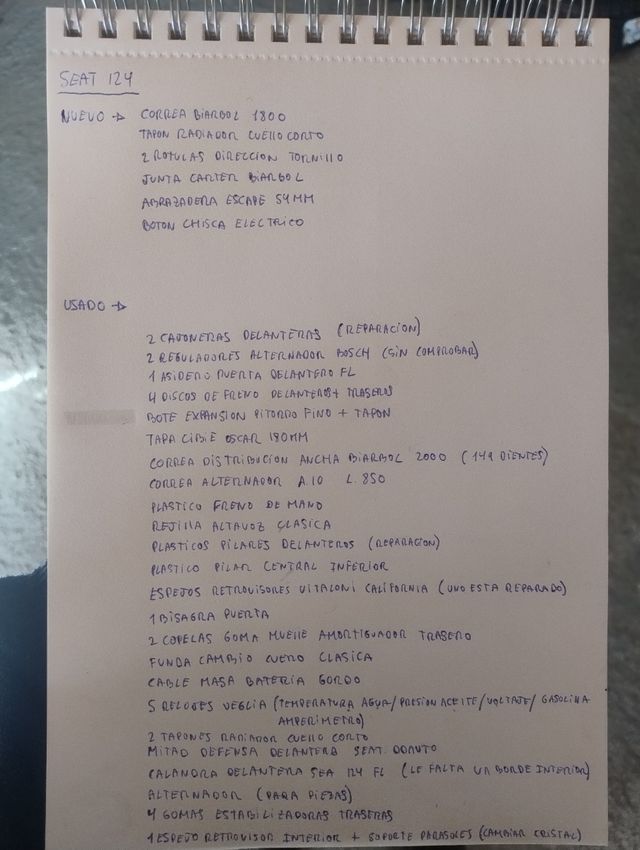 SEAT 124
NUEVO → CORREA BIARBOL 1800
TAPON RADIADOR CUELLO CORTO
2 ROTULAS DIRECCION TORNILLO
JUNTA CARTER BIARBOL
ABRAZADERA ESCAPE 54MM
BOTON CHISCA ELECTRICO
USADO →
2 CAJONERAS DELANTERAS (REPARACION)
2 REGULADORES ALTERNADOR BOSCH (SIN COMPROBAR)
1 ASIDERO PUERTA DELANTERO FL
4 DISCOS DE FRENO DELANTEROS + TRASEROS
BOTE EXPANSION PITORRO FINO + TAPON
TAPA CIBIE OSCAR 180MM
CORREA DISTRIBUCION ANCHA BIARBOL 2000 (149 DIENTES)
CORREA ALTERNADOR A.10 L.850
PLASTICO FRENO DE MANO
REJILLA ALTAVOZ CLASICA
PLASTICOS PILARES DELANTEROS (REPARACION)
PLASTICO PILAR CENTRAL INFERIOR
ESPEJOS RETROVISORES VITALONI CALIFORNIA (UNO ESTA REPARADO)
1 BISAGRA PUERTA
2 COPELAS GOMA MUELLE AMORTIGUADOR TRASERO
FUNDA CAMBIO CUERO CLASICA
CABLE MASA BATERIA GORDO
5 RELOJES VEGLIA (TEMPERATURA AGUA/PRESION ACEITE/VOLTAJE/GASOLINA
AMPERIMETRO)
2 TAPONES RADIADOR CUELLO CORTO
MITAD DEFENSA DELANTERA SEAT
CALANDRA DELANTERA SEA 124 FL (LE FALTA UN BORDE INTERIOR)
ALTERNADOR (PARA PIEZAS)
4 GOMAS ESTABILIZADORAS TRASERAS
1 ESPEJO RETROVISOR INTERIOR + SOPORTE PARASOLES (CAMBIAR CRISTAL)